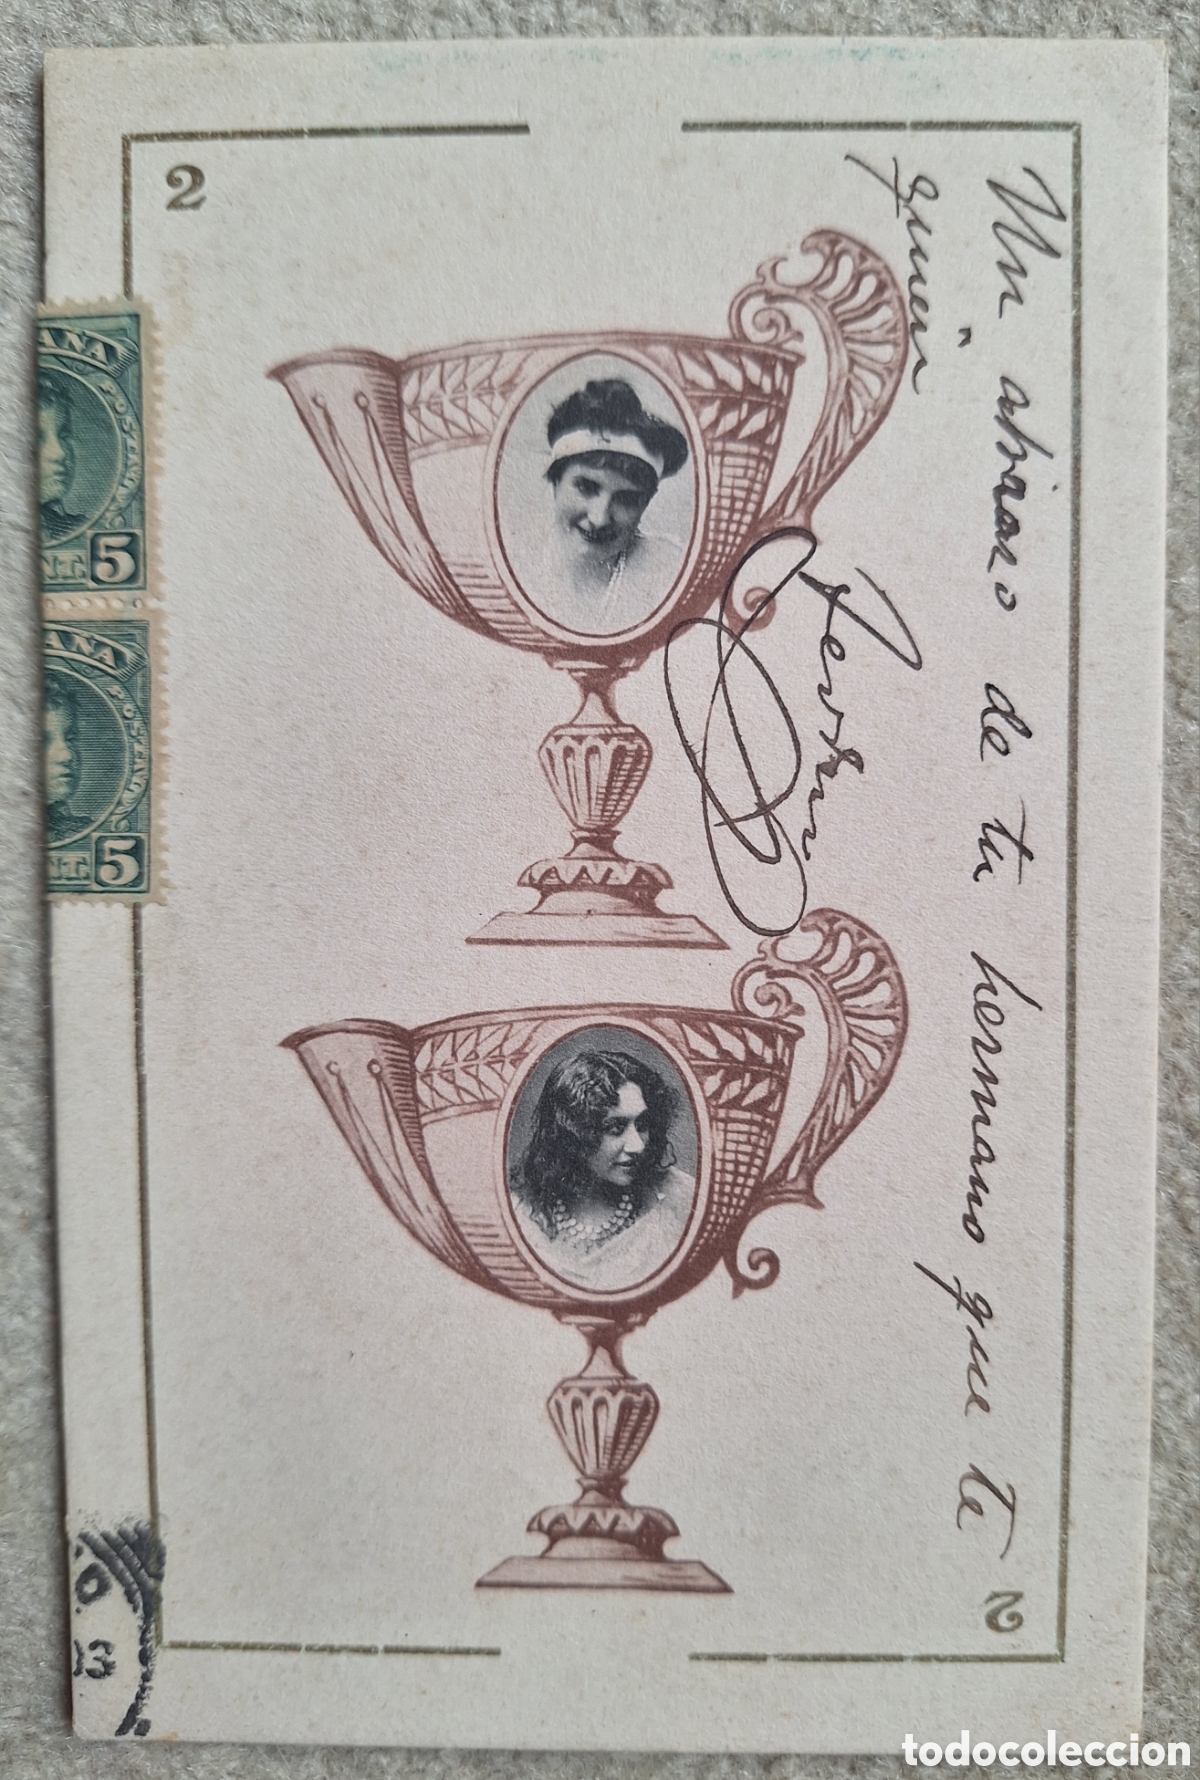 2
Un abrazo de tu hermano que te
quiere
ANA
POSTAL
NT. 5
AÑA
POSTAL
NT. 5
2
13
todocoleccion